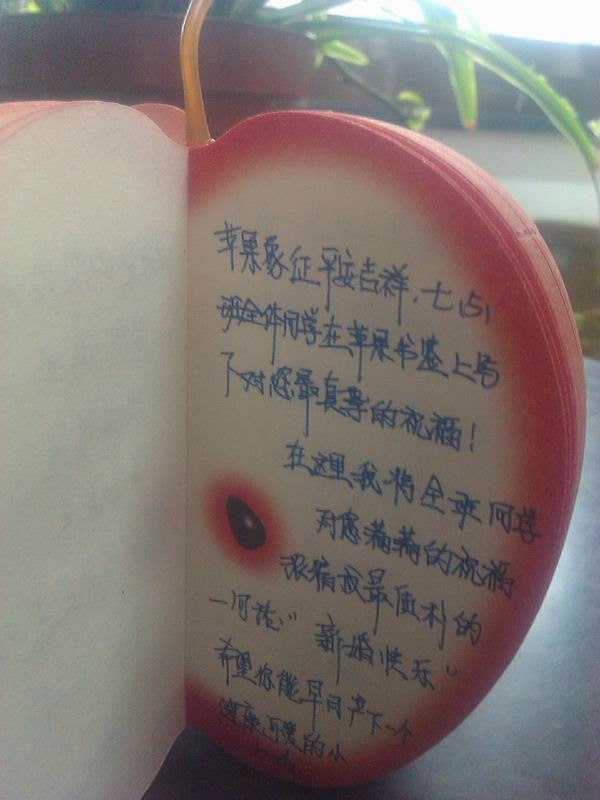 苹果象征平安吉祥,七(5)
班全体同学在苹果书签上写
下对您最真挚的祝福!
在这里我将全班同学
对您满满的祝福
浓缩成最质朴的
一句话:“新婚快乐”
希望你能早日产下一个
健康可爱的小
baby